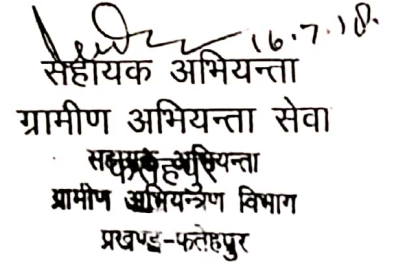 16.7.18.
सहायक अभियन्ता
ग्रामीण अभियन्ता सेवा
फतेहपुर
सहायक अभियन्ता
ग्रामीण अभियन्त्रण विभाग
प्रखण्ड-फतेहपुर